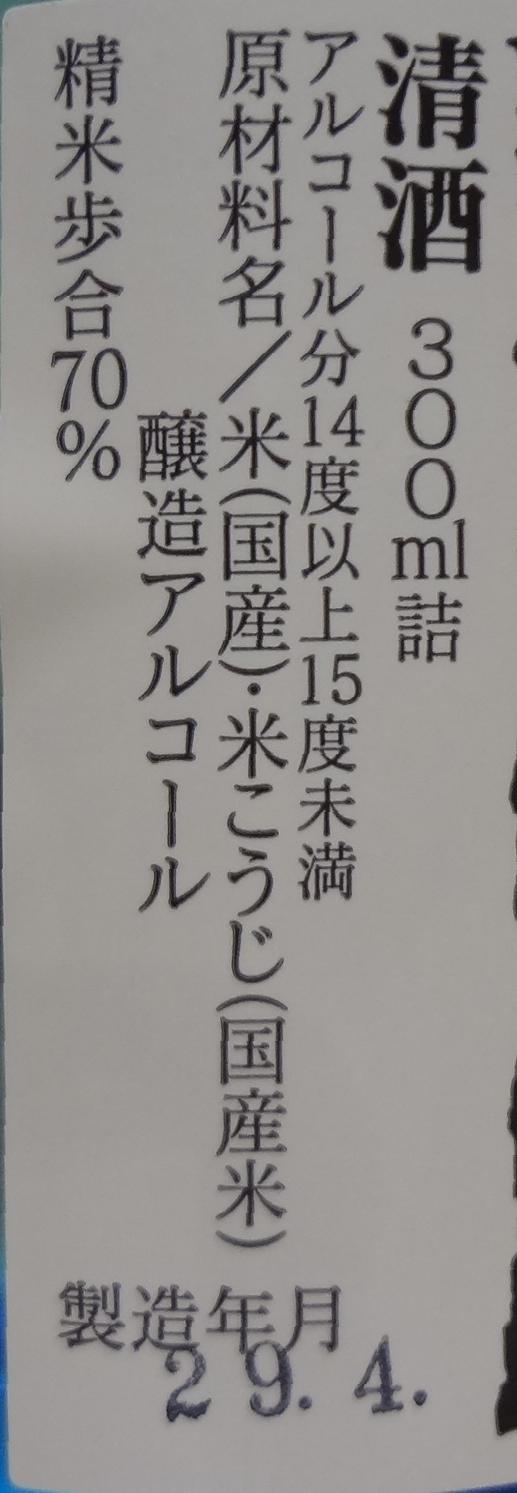 清酒 300ml詰
アルコール分14度以上15度未満
原材料名/米(国産)・米こうじ(国産米)
醸造アルコール
精米歩合70%
製造年月
29.4.